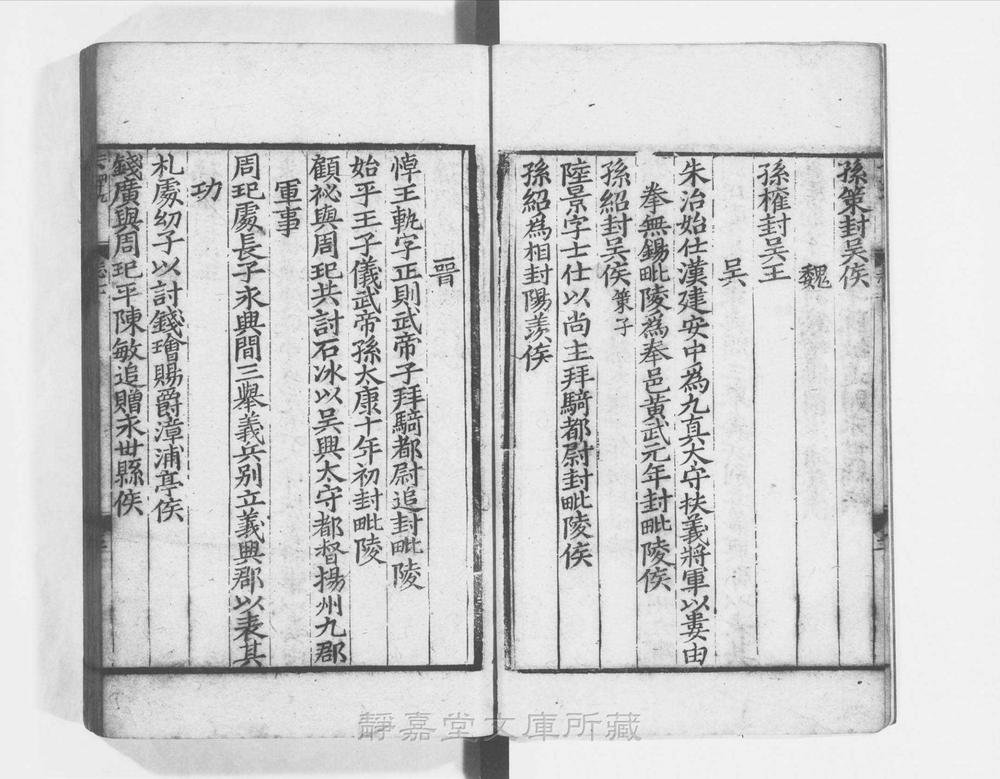 孫策封吳侯
魏
孫權封吳王
吳
朱治始仕漢建安中為九真太守扶義將軍以婁由
拳無錫毗陵為奉邑黃武元年封毗陵侯
孫紹封吳侯策子
陸景字士仕以尚主拜騎都尉封毗陵侯
孫紹為相封陽羨侯
晉
悼王軌字正則武帝子拜騎都尉追封毗陵
始平王子儀武帝孫太康十年初封毗陵
顧祕與周玘共討石冰以吳興太守都督揚州九郡
軍事
周玘處長子永興間三舉義兵別立義興郡以表其
功
札處幼子以討錢璯賜爵漳浦亭侯
錢廣與周玘平陳敏追贈永世縣侯
靜嘉堂文庫所藏